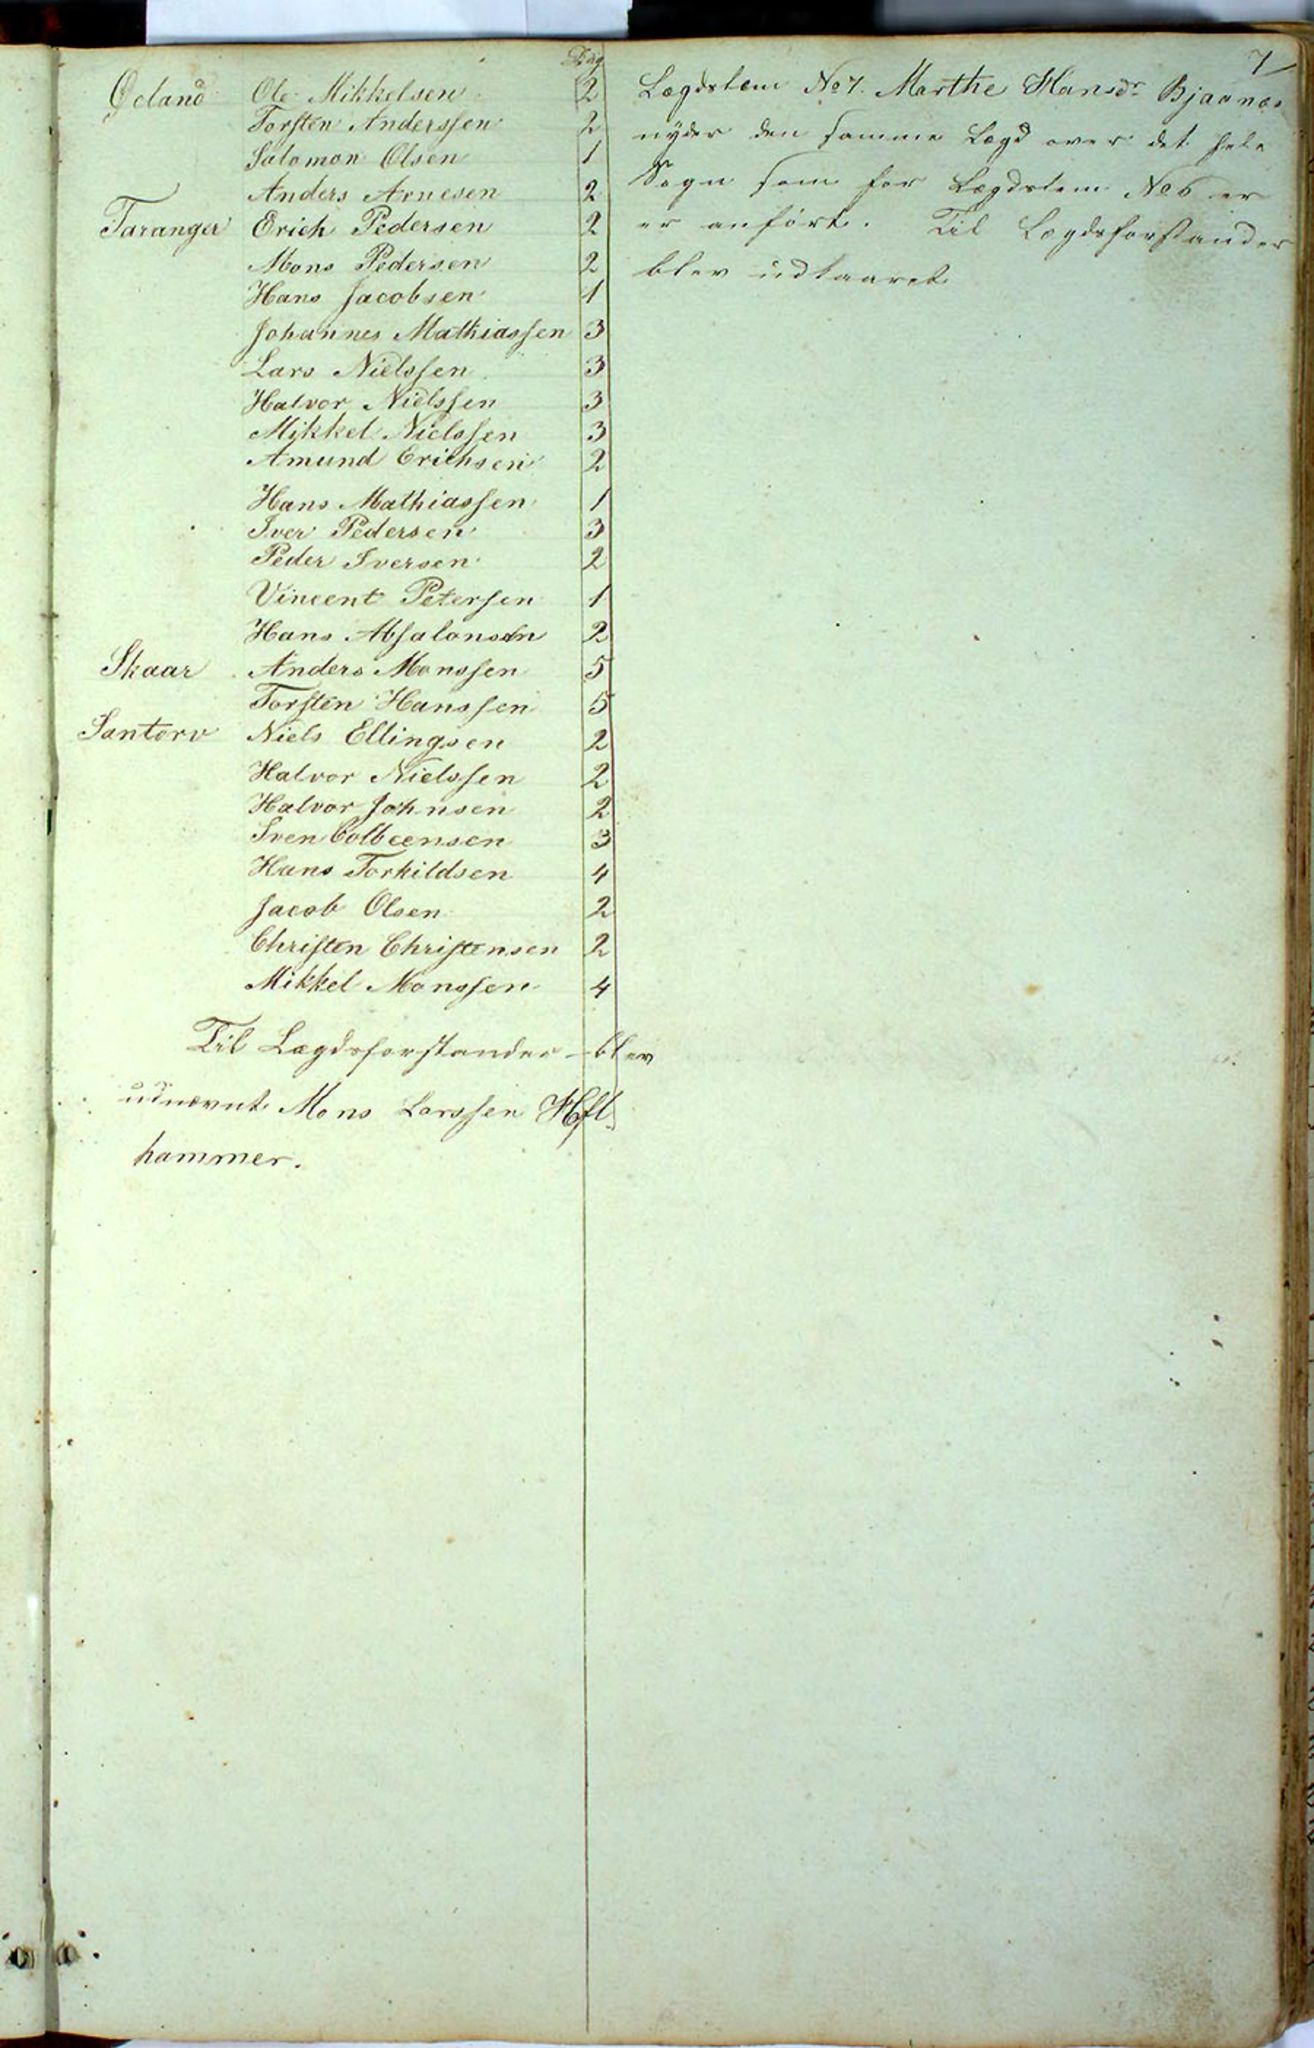 7
Dag
Øeland Ole Mikkelsen 2
Torsten Anderssen 2
Salomon Olsen 1
Anders Arnesen 2
Taranger Erich Pedersen 2
Mons Pedersen 2
Hans Jacobsen 1
Johannes Mathiassen 3
Lars Nielssen 3
Halvor Nielssen 3
Mikkel Nielssen 3
Amund Erichsen 2
Hans Mathiassen 1
Iver Pedersen 3
Peder Iversen 2
Vincent Petersen 1
Hans Absalonsen 2
Skaar Anders Monssen 5
Torsten Hanssen 5
Santorv Niels Ellingsen 2
Halvor Nielssen 2
Halvor Johnsen 2
Sven Colbeensen 3
Hans Torkildsen 4
Jacob Olsen 2
Christen Christensen 2
Mikkel Monssen 4
Til Lægdsforstander blev
udnævnt Mons Larssen
hammer.
Lægdslem No 7. Marthe Hansdr Bjaanæs
nyder den samme Lægd over det hele
Sogn som for Lægdslem No 6 er
er anført. Til Lægdsforstander
blev udkaaret